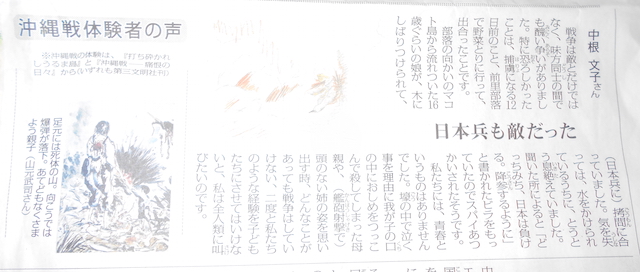 沖縄戦体験者の声
※沖縄戦の体験は、『打ち砕かれ
しうるま島』と『沖縄戦――痛恨の
日々』から(いずれも第三文明社刊)
「足元には死体の山。向こうでは
爆弾が落下。あてどもなくさま
よう親子」(山元武臣さん)
日本兵も敵だった
中根 文子さん
戦争は敵とだけでは
なく、味方同士の間で
も醜い争いがありまし
た。特に恐ろしかった
ことは、捕虜になる12
日前のこと、前里部落
で野菜とりに行って、
出合ったことです。
部落の向かいのマコ
ト島から流れついた16
歳ぐらいの娘が、木に
しばりつけられて、
(日本兵に)拷問に合
っていました。気を失
っては、水をかけられ
ているうちに、とうと
う息絶えていました。
聞いた所によると「ど
っちみち、日本は負け
る。降参するように」
と書かれたビラをもっ
ていたのでスパイあつ
かいされたそうです。
私たちには、青春と
いうものはありません
でした。壕の中で泣く
事を理由に我が子の口
の中におしめをつっこ
んで殺してしまった母
親や、(艦砲射撃で)
頭のない姉の姿を思い
出す時、どんなことが
あっても戦争はしてい
けない、二度と私たち
のような経験を子ども
たちにさせてはいけな
いと、私は全人類に叫
びたいのです。